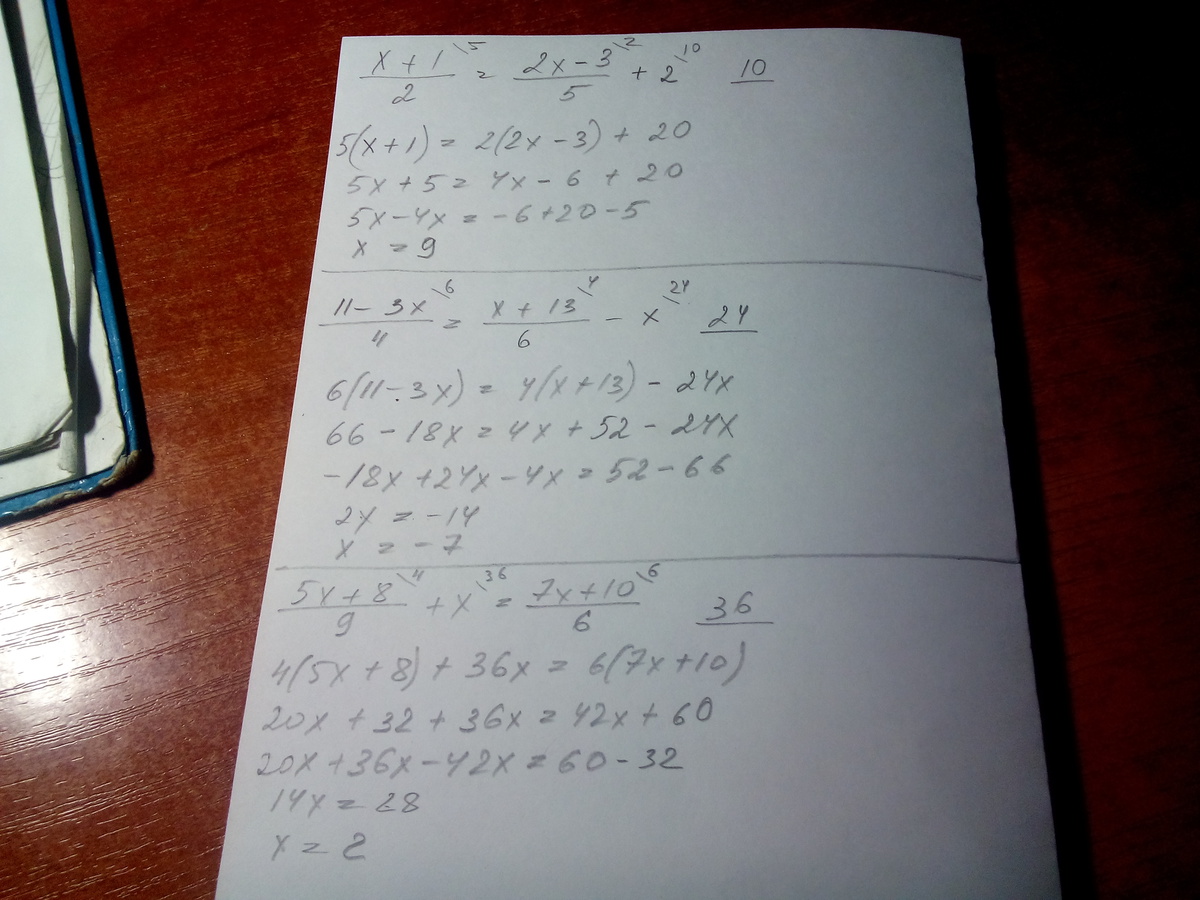 (x + 1)\5 / 2 = (2x - 3)\2 / 5 + 2\10    10
5(x+1) = 2(2x - 3) + 20
5x + 5 = 4x - 6 + 20
5x - 4x = -6 + 20 - 5
x = 9
(11 - 3x)\6 / 4 = (x + 13)\4 / 6 - x\24    24
6(11 - 3x) = 4(x + 13) - 24x
66 - 18x = 4x + 52 - 24x
-18x + 24x - 4x = 52 - 66
2x = -14
x = -7
(5x + 8)\4 / 9 + x\36 = (7x + 10)\6 / 6    36
4(5x + 8) + 36x = 6(7x + 10)
20x + 32 + 36x = 42x + 60
20x + 36x - 42x = 60 - 32
14x = 28
x = 2